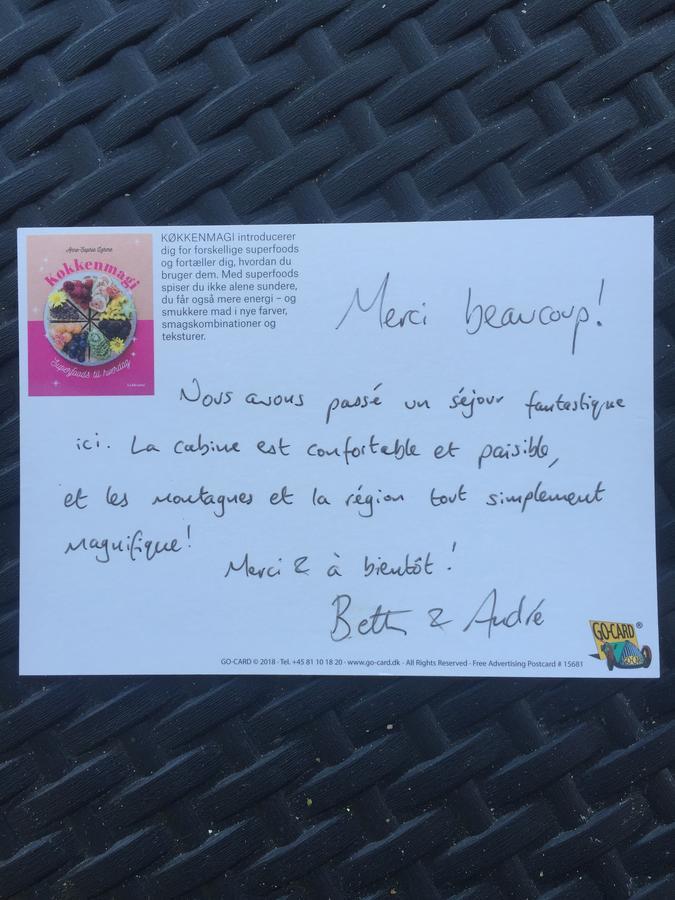 Anne-Sophie
Køkkenmagi
Superfoods til hverdag
KØKKENMAGI introducerer
dig for forskellige superfoods
og fortæller dig, hvordan du
bruger dem. Med superfoods
spiser du ikke alene sundere,
du får også mere energi – og
smukkere mad i nye farver,
smagskombinationer og
teksturer.
Merci beaucoup!
Nous avons passé un séjour fantastique
ici. La cabine est confortable et paisible,
et les montagnes et la région tout simplement
magnifique!
Merci & à bientôt!
Beth & André
GO-CARD ®
GO-CARD
GO-CARD © 2018 · Tel. +45 81 10 18 20 · www.go-card.dk · All Rights Reserved · Free Advertising Postcard # 15681